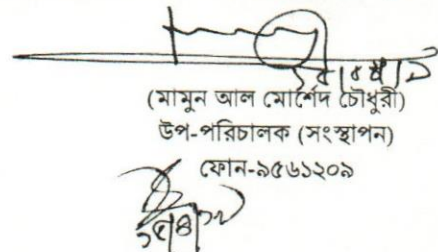 (মামুন আল মোর্শেদ চৌধুরী)
উপ-পরিচালক (সংস্থাপন)
ফোন-৯৫৬১২০৯